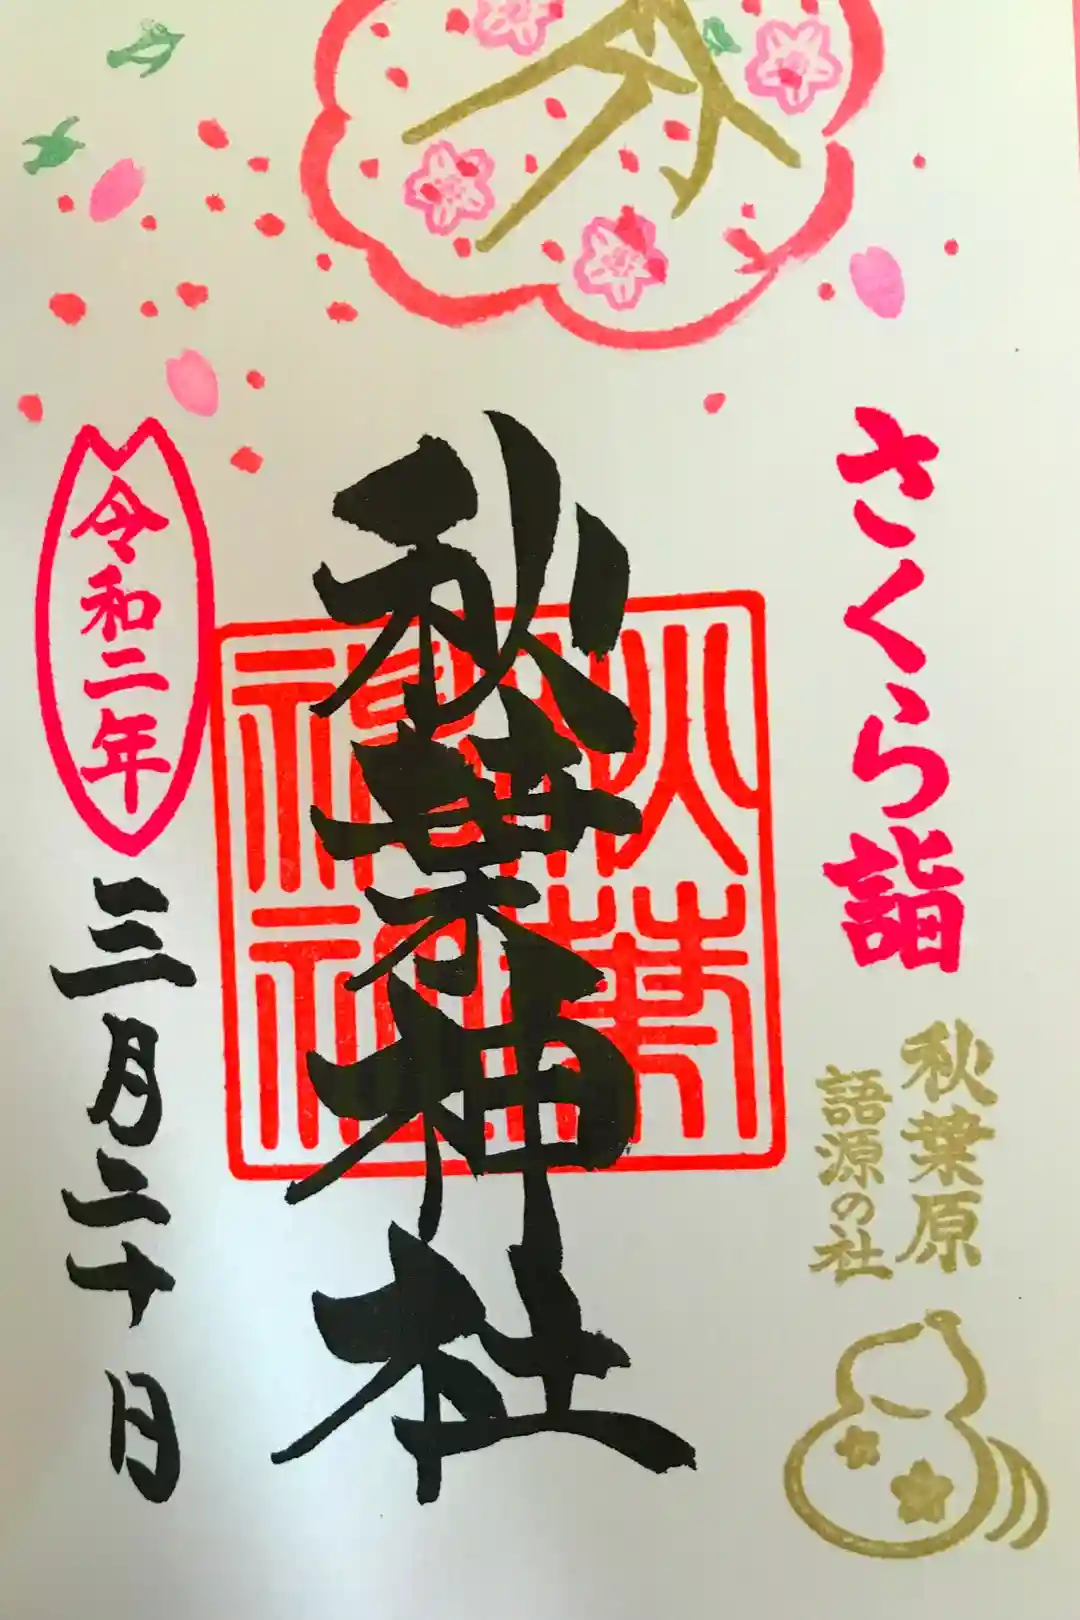 さくら詣
秋葉原
語源の社
秋葉神社
令和二年
三月二十日